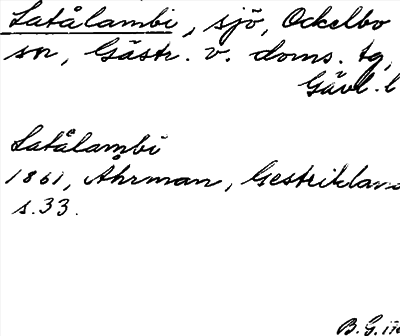 Latålambi, sjö, Ockelbo
sn, Gästr. v. doms. tg,
Gävl. l
Latålambi
1861, Åhrman, Gestrikland
s. 33.
B.G.